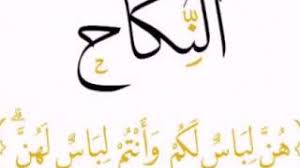 النِّكَاح
﴿هُنَّ لِبَاسٌ لَكُمْ وَأَنْتُمْ لِبَاسٌ لَهُنَّ ۗ﴾